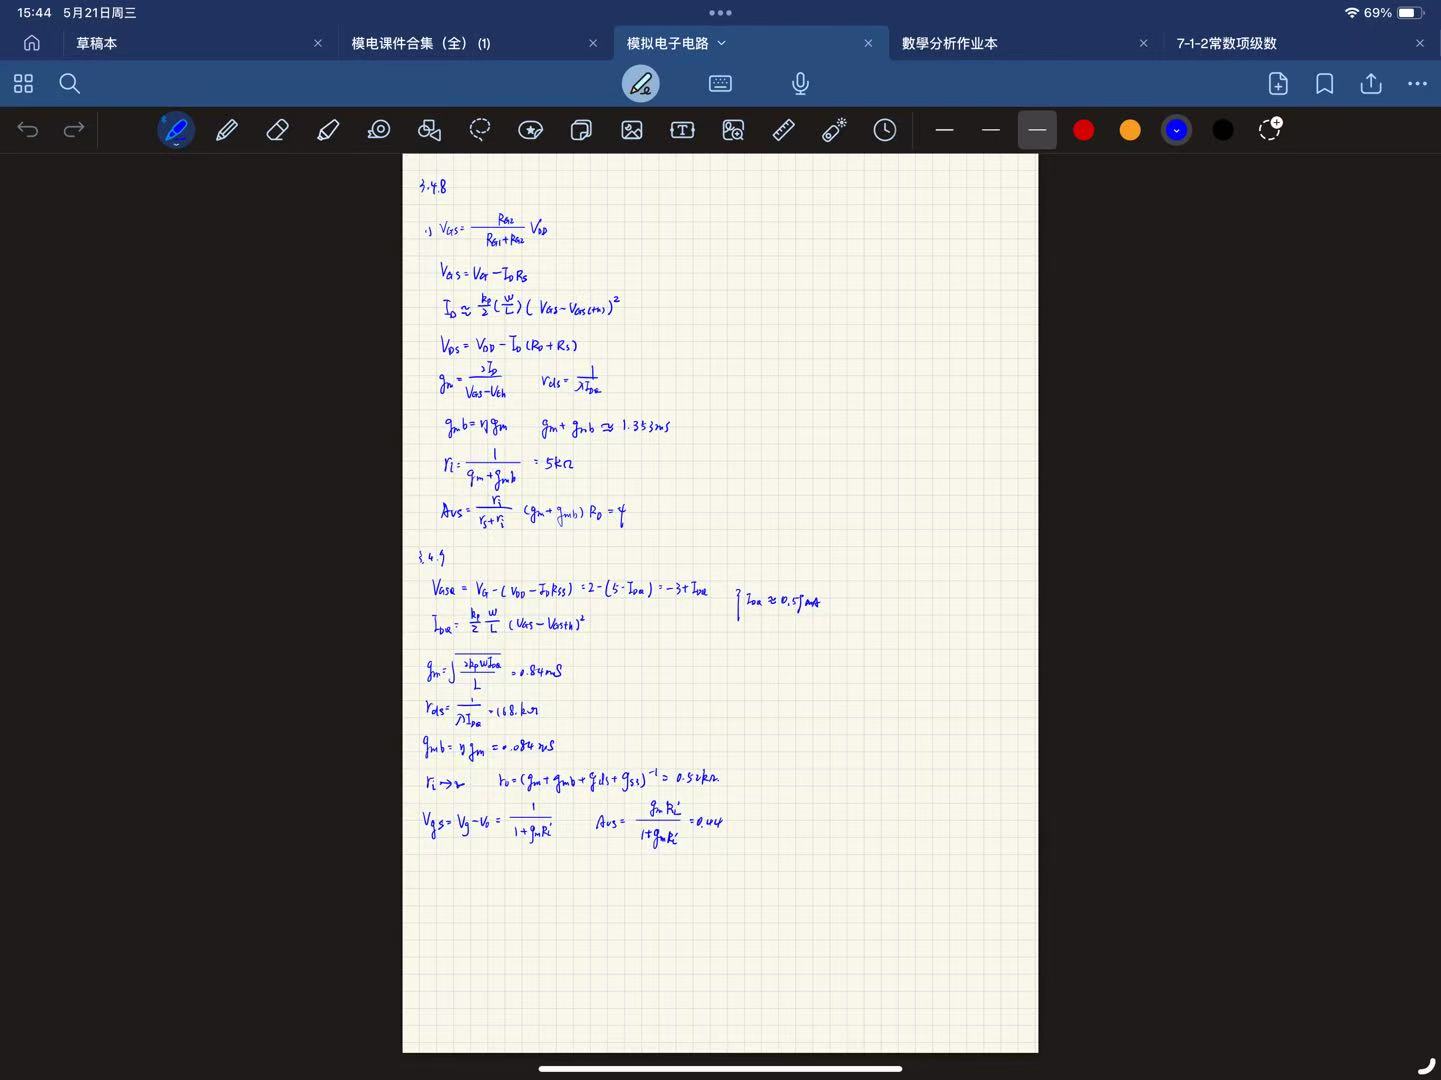 15:44 5月21日周三
69%
草稿本
模电课件合集（全） (1)
模拟电子电路
數學分析作业本
7-1-2常数项级数
3.4.8
1) V_GS = R_G2 / (R_G1 + R_G2) V_DD
V_GS = V_G - I_D R_S
I_D ≈ k_p/2 (W/L) (V_GS - V_GS(th))²
V_DS = V_DD - I_D (R_D + R_S)
g_m = 2I_D / (V_GS - V_th) r_ds = 1 / λI_DQ
g_mb = η g_m g_m + g_mb ≈ 1.353ms
r_i = 1 / (g_m + g_mb) = 5kΩ
Avs = r_i / (r_s + r_i) (g_m + g_mb) R_D = 4
3.4.9
V_GSQ = V_G - (V_DD - I_D R_SS) = 2 - (5 - I_DQ) = -3 + I_DQ
I_DQ = k_p/2 W/L (V_GS - V_GSth)²
} I_DQ ≈ 0.59mA
g_m = √(2k_p W I_DQ / L) = 0.84mS
r_ds = 1 / λI_DQ = 168.kΩ
g_mb = η g_m = 0.084mS
r_i → ∞ r_o = (g_m + g_mb + g_ds + g_ss)⁻¹ = 0.52kΩ
V_gs = V_g - V_o = 1 / (1 + g_m R_L') Avs = g_m R_L' / (1 + g_m R_L') = 0.44